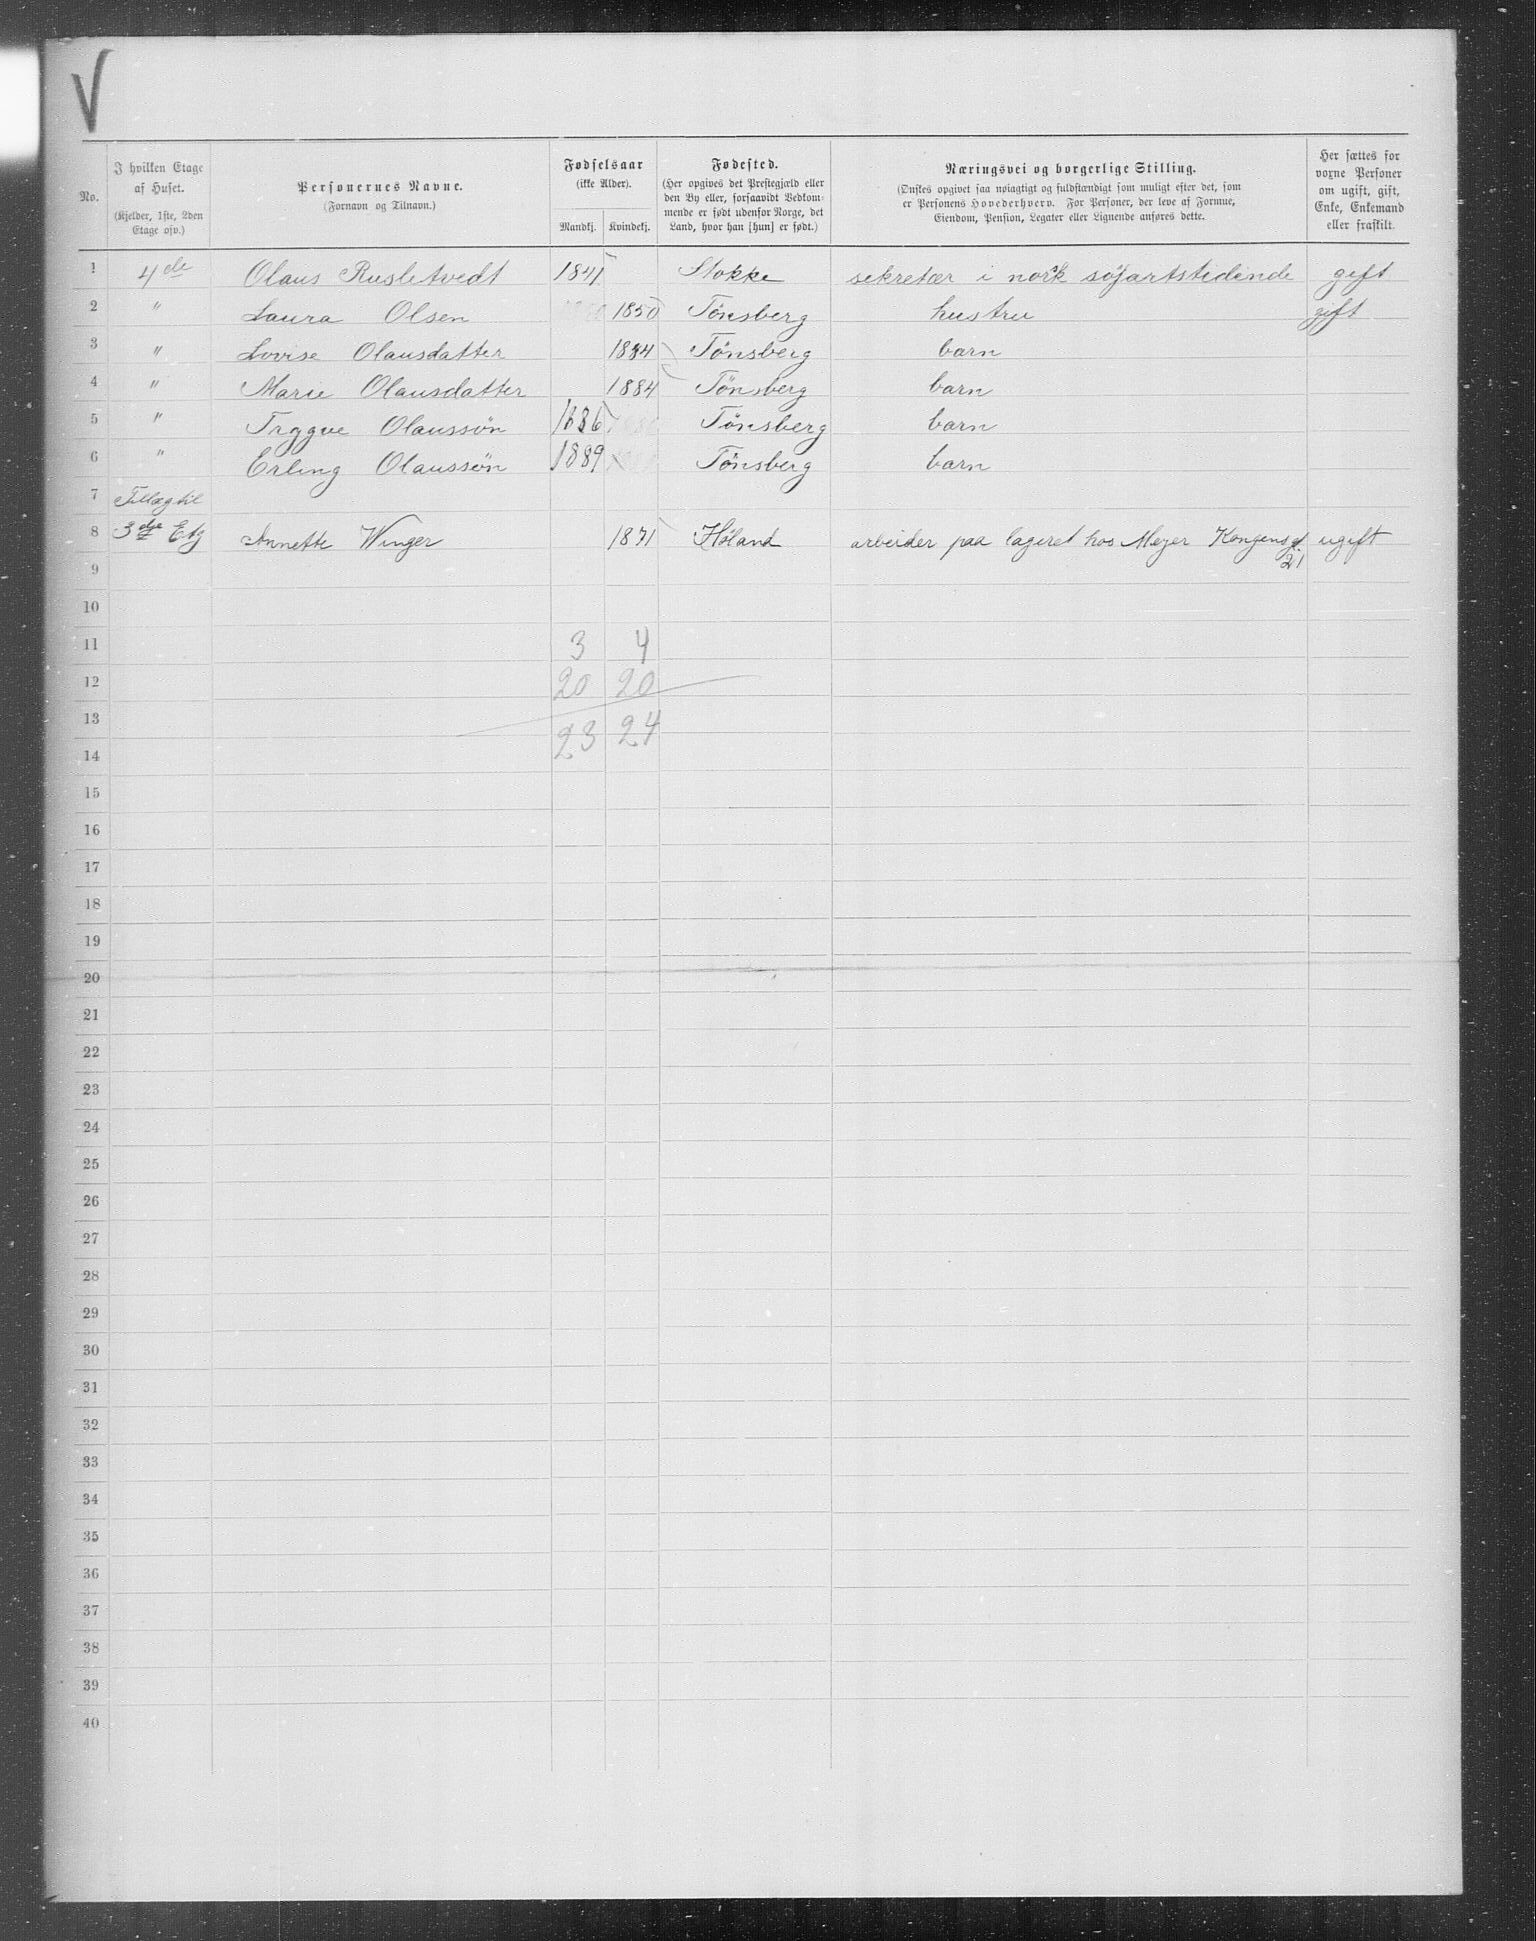 V
No.
I hvilken Etage af Huset.
(Kjelder, 1ste, 2den Etage osv.)
Personernes Navne.
(Fornavn og Tilnavn.)
Fødselsaar
(ikke Alder).
Mandkj. Kvindekj.
Fødested.
(Her opgives det Prestegjæld eller den By eller, forsaavidt Bedkommende er født udenfor Norge, det Land, hvor han [hun] er født.)
Næringsvei og borgerlige Stilling.
(Ønskes opgivet saa nøiagtigt og fuldstændigt som muligt efter det, som er Personens Hovederhverv. For Personer, der leve af Formue, Eiendom, Pension, Legater eller Lignende anføres dette.
Her sættes for voxne Personer om ugift, gift, Enke, Enkemand eller fraskilt.
1 4de Olaus Rusletvedt 1841 Stokke sekretær i norsk söfartstidende gift
2 " Laura Olsen 1850 Tönsberg hustru gift
3 " Lovise Olausdatter 1884 Tönsberg barn
4 " Marie Olausdatter 1884 Tönsberg barn
5 " Trygve Olaussön 1886 Tönsberg barn
6 " Erling Olaussön 1889 Tönsberg barn
7 Tillæg til
8 3die Etg Annette Winger 1871 Høland arbeider paa lageret hos Meyer Kongensgt ugift
9 21
10
11 3 4
12 20 20
13 23 24
14
15
16
17
18
19
20
21
22
23
24
25
26
27
28
29
30
31
32
33
34
35
36
37
38
39
40